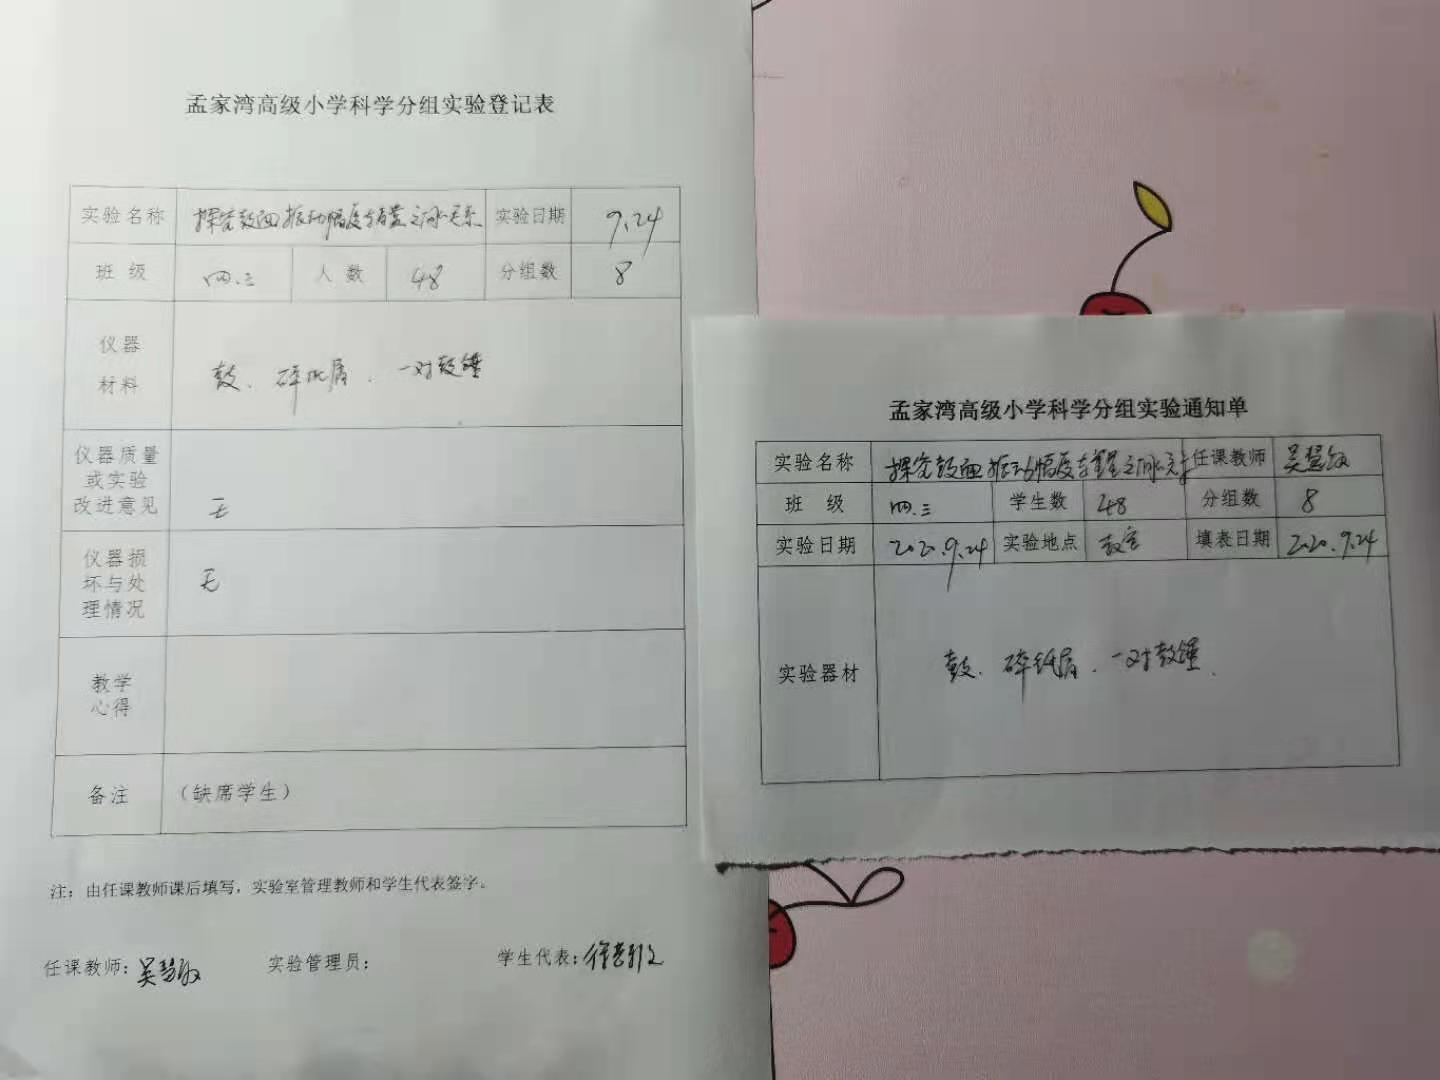 孟家湾高级小学科学分组实验登记表
实验名称 探究鼓面振动幅度与音量之间关系 实验日期 9.24
班 级 四.三 人 数 48 分组数 8
仪器
材料
鼓、碎纸屑、一对鼓锤
仪器质量
或实验
改进意见
无
仪器损
坏与处
理情况
无
教学
心得
备注 (缺席学生)
注：由任课教师课后填写，实验室管理教师和学生代表签字。
任课教师：吴慧敏 实验管理员： 学生代表：
孟家湾高级小学科学分组实验通知单
实验名称 探究鼓面振动幅度与音量之间关系 任课教师 吴慧敏
班 级 四.三 学生数 48 分组数 8
实验日期 2020.9.24 实验地点 教室 填表日期 2020.9.24
实验器材 鼓、碎纸屑、一对鼓锤、